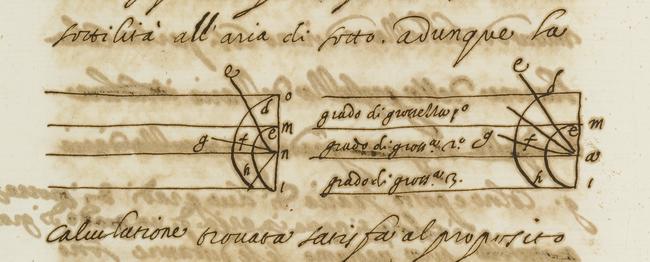 sottilità all'aria di sotto. adunque la
e
d
o
m
e
g
f
n
h
i
grado di grossezza p.º
grado di gross.ª 2.º
grado di gross.ª 3.
e
d
m
e
g
f
a
h
i
Calculatione trovata satisfà al proposito